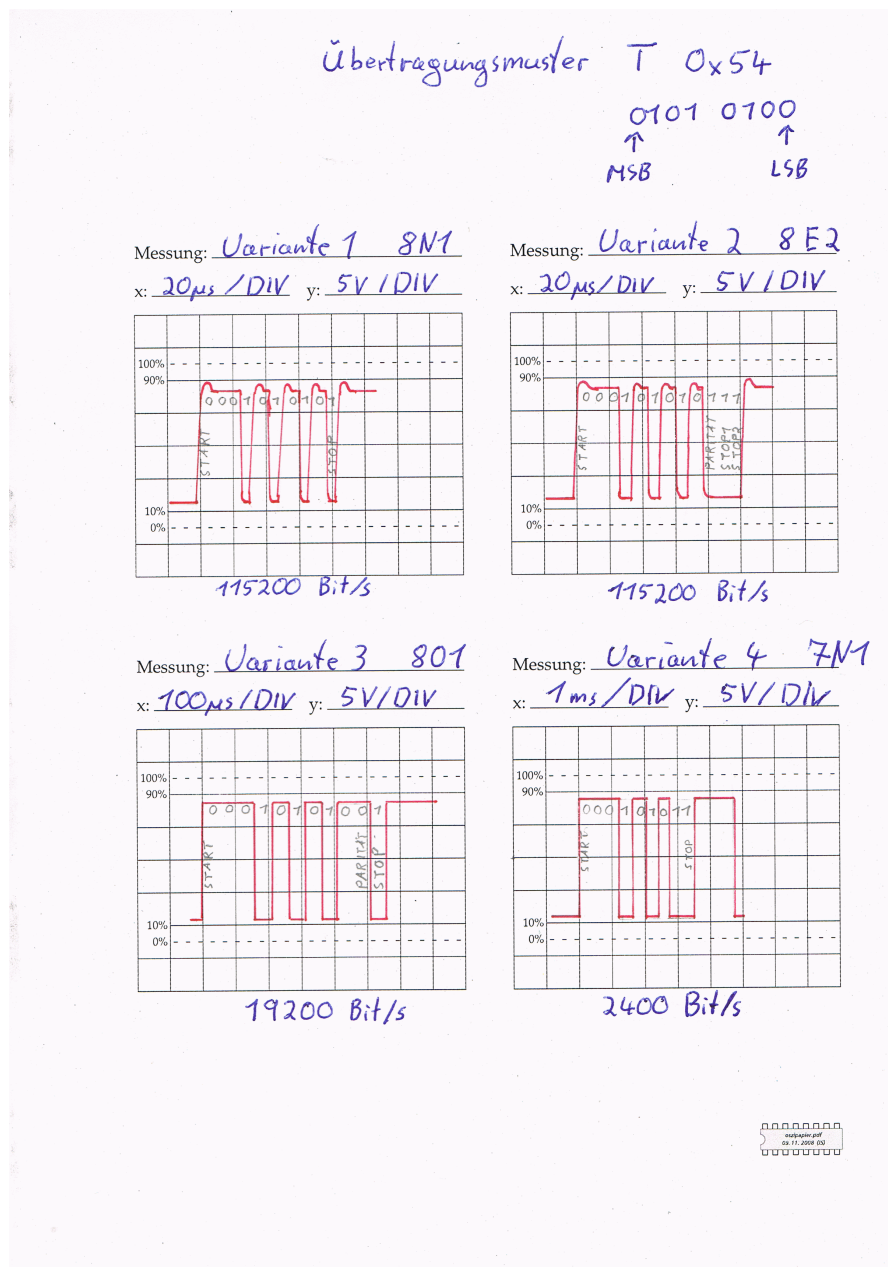 Übertragungsmuster T 0x54
0101 0100
↑ ↑
MSB LSB
Messung: Variante 1 8N1
x: 20µs / DIV y: 5V / DIV
100%
90%
0 0 0 1 0 1 0 1 0 1
START STOP
10%
0%
115200 Bit/s
Messung: Variante 2 8E2
x: 20µs / DIV y: 5V / DIV
100%
90%
0 0 0 1 0 1 0 1 0 1 1 1
START PARITÄT STOP1 STOP2
10%
0%
115200 Bit/s
Messung: Variante 3 8O1
x: 100µs / DIV y: 5V / DIV
100%
90%
0 0 0 1 0 1 0 1 0 0 1
START PARITÄT STOP
10%
0%
19200 Bit/s
Messung: Variante 4 7N1
x: 1ms / DIV y: 5V / DIV
100%
90%
0 0 0 1 0 1 0 1 1
START STOP
10%
0%
2400 Bit/s
oszipapier.pdf
03.11.2008 (IS)